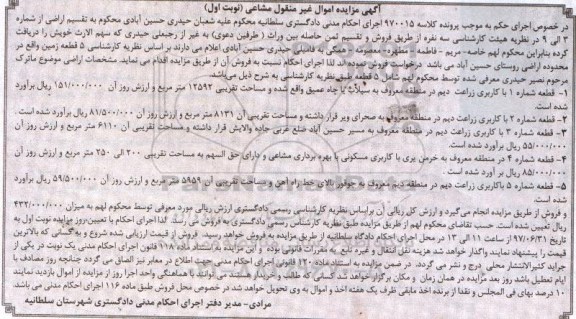 آگهی مزایده اموال غیر منقول مشاعی (نوبت اول)
در خصوص اجرای حکم به موجب پرونده کلاسه ۹۷۰۰۱۵ اجرای احکام مدنی دادگستری سلطانیه محکوم علیه شعبان حیدری حسین آبادی محکوم به تقسیم اراضی از شماره
۳ الی ۹ در نظریه هیئت کارشناسی سه نفره از طریق فروش و تقسیم ثمن حاصله بین وراث (طرفین دعوی) به غیر از رجبعلی حیدری که سهم الارث خویش را دریافت
کرده بنابراین محکوم لهم خاصه - مریم - فاطمه - مطهره - معصومه - همگی به فامیلی حیدری حسین آبادی اعلام می دارند بر اساس نظریه کارشناسی ۵ قطعه زمین واقع در
محدوده اراضی روستای حسین آباد می باشد درخواست فروش نموده اند لذا اجرای احکام نسبت به فروش آن از طریق مزایده اقدام می نماید. مشخصات اراضی موضوع ماترک
مرحوم نصیر حیدری معرفی شده توسط محکوم لهم شامل ۵ قطعه طبق نظریه کارشناسی به شرح ذیل می باشد.
۱- قطعه شماره ۱ با کاربری زراعت دیم در منطقه معروف به سیلاب یا چاه عمیق واقع شده و مساحت تقریبی ۱۲۵۹۲ متر مربع و ارزش روز آن ۱۵۱/۰۰۰/۰۰۰ ریال برآورد
شده است.
۲- قطعه شماره ۲ با کاربری زراعت دیم در منطقه معروف به صحرای ویر قرار داشته و مساحت تقریبی آن ۸۱۳۱ متر مربع و ارزش روز آن ۸۱/۵۰۰/۰۰۰ ریال برآورد شده است.
۳- قطعه شماره ۳ با کاربری زراعت دیم در منطقه معروف به مسیر حسین آباد ضلع غربی جاده والایش قرار داشته و مساحت تقریبی آن ۶۱۱۰ متر مربع و ارزش روز آن
۵۵/۰۰۰/۰۰۰ ریال برآورد شده است.
۴- قطعه شماره ۴ در منطقه معروف به خرمن یری با کاربری مسکونی با بهره برداری مشاعی و دارای حق السهم به مساحت تقریبی ۲۰۰ الی ۲۵۰ متر مربع و ارزش روز آن
۸۵/۰۰۰/۰۰۰ ریال بر آورد شده است.
۵- قطعه شماره ۵ با کاربری زراعت دیم در منطقه دیم معروف به جوقور بالای خط راه آهن و مساحت تقریبی آن ۵۹۵۹ متر مربع و ارزش روز آن ۵۹/۵۰۰/۰۰۰ ریال برآورد
شده است.
و فروش از طریق مزایده انجام می گیرد و ارزش کل ریالی آن براساس نظریه کارشناسی رسمی دادگستری ارزش ریالی مورد معرفی توسط محکوم لهم به میزان ۴۳۲/۰۰۰/۰۰۰
ریال تعیین شده است. حسب تقاضای محکوم لهم از طریق مزایده طبق نظریه کارشناس رسمی دادگستری به فروش می رسد. لذا اجرای احکام با تعیین روز مزایده نوبت اول به
تاریخ ۹۷/۰۶/۳۱ از ساعت ۱۱ الی ۱۲ در محل اجرای احکام دادگاه سلطانیه از طریق مزایده به فروش خواهد رسید. فروش از قیمت ارزیابی شده شروع و به کسانی که بالاترین
قیمت را پیشنهاد نمایند واگذار خواهد شد هزینه نقل انتقال و غیره تابع مقررات قانونی بوده و این مزایده به استناد ماده ۱۱۸ قانون اجرای احکام مدنی یک نوبت در یکی از
جراید کثیرالانتشار محلی درج و نشر می گردد. در ضمن مزایده به استناد ماده ۱۲۰ قانون اجرای احکام مدنی جهت اطلاع در معابر نیز الصاق می گردد چنانچه روز مصادف با
ایام تعطیل باشد روز بعد مزایده در همان زمان و مکان برگزار خواهد شد کسانی که طالب و خریدار هستند می توانند با هماهنگی واحد اجرا روز از مزایده از اموال بازدید نمایند
۱۰ درصد بهای فی المجلس و نقدا از برنده اخذ مابقی ظرف یک هفته اخذ و اموال به وی تحویل خواهد شد در خصوص محل فروش طبق ماده ۱۱۶ اجرای احکام مدنی می باشد
مرادی- مدیر دفتر اجرای احکام مدنی دادگستری شهرستان سلطانیه